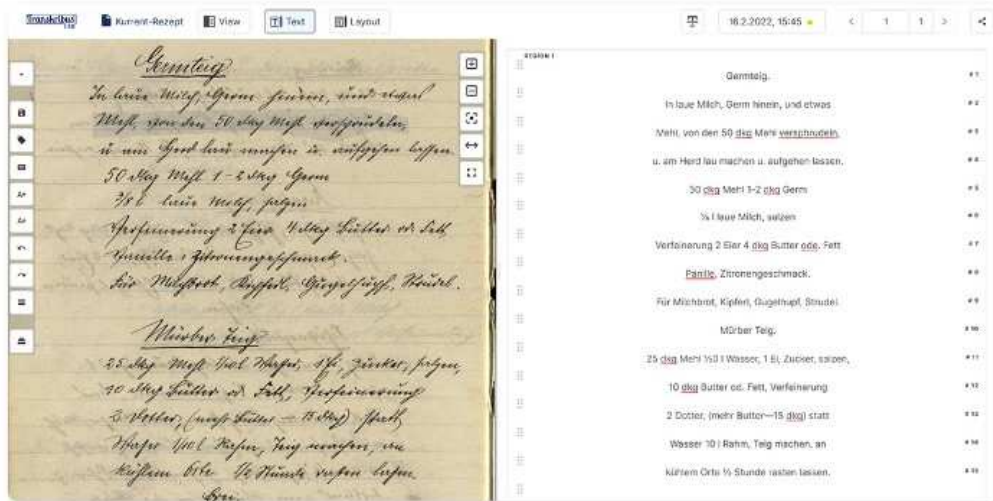 Transkribus
LITE
Kurrent-Rezept
View
Text
Layout
16.2.2022, 15:45
1
1
Germteig
In laue Milch, Germ hinein, und etwas
Mehl, von den 50 dkg Mehl versprudeln,
u. am Herd lau machen u. aufgehen lassen.
50 dkg Mehl 1-2 dkg Germ
3/8 l laue Milch, salzen
Verfeinerung 2 Eier 4 dkg Butter od. Fett
Vanille, Zitronengeschmack.
Für Milchbrot, Kipferl, Gugelhupf, Strudel.
Mürber Teig.
25 dkg Mehl 1/10 l Wasser, 1 Ei, Zucker, salzen,
10 dkg Butter od. Fett, Verfeinerung
2 Dotter, (mehr Butter — 15 dkg) statt
Wasser 1/10 l Rahm, Teig machen, an
kühlem Orte 1/2 Stunde rasten lassen.
REGION 1
Germteig.
#1
In laue Milch, Germ hinein, und etwas
#2
Mehl, von den 50 dkg Mehl versphrudeln,
#3
u. am Herd lau machen u. aufgehen lassen.
#4
50 dkg Mehl 1-2 dkg Germ
#5
l laue Milch, salzen
#6
Verfeinerung 2 Eier 4 dkg Butter ode. Fett
#7
Panille, Zitronengeschmack.
#8
Für Milchbrot, Kipferl, Gugelhupf, Strudel.
#9
Mürber Teig.
#10
25 dkg Mehl ⅒0 l Wasser, 1 Ei, Zucker, salzen,
#11
10 dkg Butter od. Fett, Verfeinerung
#12
2 Dotter, (mehr Butter—15 dkg) statt
#13
Wasser 10 l Rahm, Teig machen, an
#14
kühlem Orte ½ Stunde rasten lassen.
#15